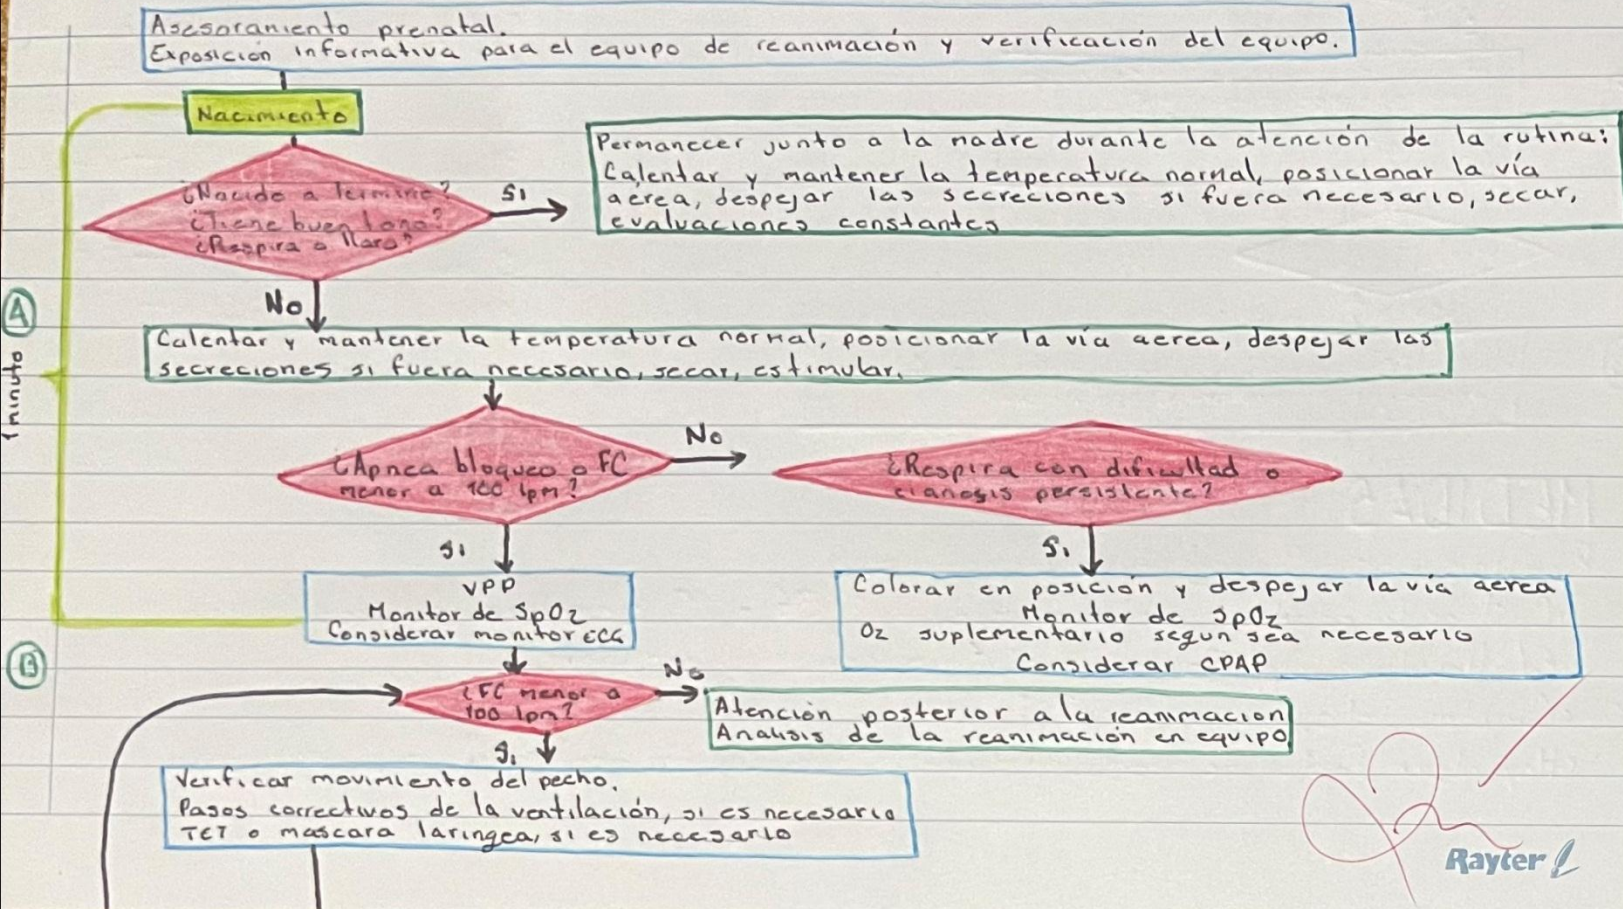 Asesoramiento prenatal.
Exposición informativa para el equipo de reanimación y verificación del equipo.
Nacimiento
¿Nacido a termino?
¿Tiene buen tono?
¿Respira o llora?
SI
Permanecer junto a la madre durante la atención de la rutina:
Calentar y mantener la temperatura normal, posicionar la vía
aerea, despejar las secreciones si fuera necesario, secar,
evaluaciones constantes
No
A
1 minuto
Calentar y mantener la temperatura normal, posicionar la vía aerea, despejar las
secreciones si fuera necesario, secar, estimular.
¿Apnea bloqueo o FC
menor a 100 lpm?
No
¿Respira con dificultad o
cianosis persistente?
SI
Si
VPP
Monitor de SpO2
Considerar monitor ECG
Colorar en posición y despejar la vía aerea
Monitor de SpO2
O2 suplementario segun sea necesario
Considerar CPAP
B
¿FC menor a
100 lpm?
No
Atención posterior a la reanimacion
Analisis de la reanimación en equipo
Si
Verificar movimiento del pecho.
Pasos correctivos de la ventilación, si es necesario
TET o mascara laringea, si es necesario
Rayter